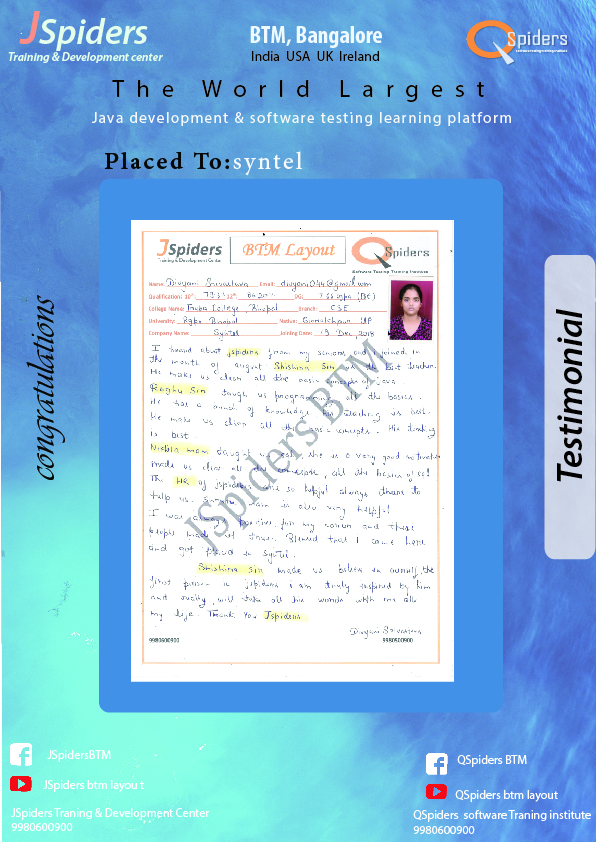 JSpiders
Training & Development center
BTM, Bangalore
India USA UK Ireland
QSpiders
The World Largest
Java development & software testing learning platform
Placed To:syntel
congratulations
Testimonial
JSpiders
Training & Development Center
BTM Layout
QSpiders
Software Testing Training Institute
Name: Divyani Srivastava Email:
Qualification: 10th: 12th: DG: (BE)
College Name: College, Bhopal Branch: CSE
University: Bhopal Native: UP
Company Name: Syntel Joining Date: 19 Dec, 2018
I heard about jspiders from my seniors and I joined in
the month of august Shishira Sir is the best teacher.
He make us clear all the basic concepts of java.
Raghu Sir taught us programming all the basics.
He has a bunch of knowledge his teaching is best.
he make us clear all the concepts. His thinking
is best.
Nishla mam taught us she is a very good motivator
made us clear all the concepts, all the basics of
The HR of jspiders are so helpful always there to
help us. mam is also very helpful
I was always for my and these
people made it true. Blessed that I came here
and got placed in Syntel.
Shishira Sir made us believe in ourself, the
first person in jspiders I am truly inspired by him
and will take all his words with me all
my life Thank You Jspiders.
Divyani Srivastava
9980600900
9980500900
JSpiders BTM
JSpidersBTM
JSpiders btm layou t
JSpiders Traning & Development Center
9980600900
QSpiders BTM
QSpiders btm layout
QSpiders software Traning institute
9980600900